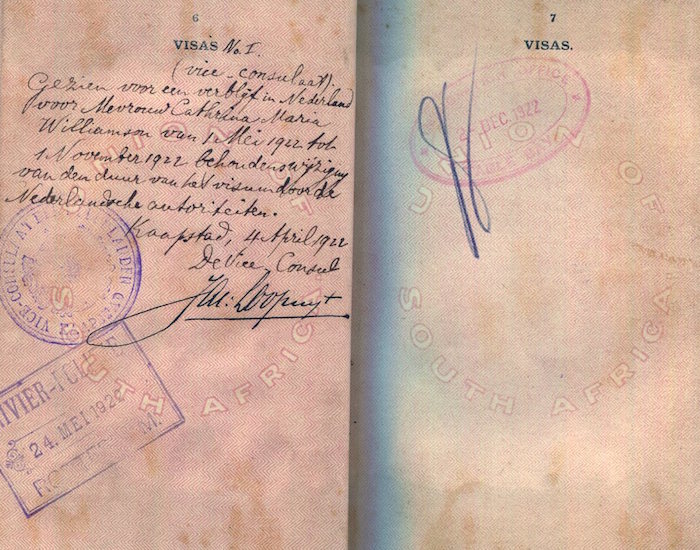 6
VISAS No. I.
(vice-consulaat)
Gezien voor een verblijf in Nederland
voor Mevrouw Cathrina Maria
Williamson van 1 Mei 1922 tot
1 November 1922 behoudens wijziging
van den duur van het visum door de
Nederlandsche autoriteiten.
Kaapstad, 4 April 1922
De Vice Consul
24. MEI 192
7
VISAS.
OFFICE
DEC. 1922
UNION OF SOUTH AFRICA
SOUTH AFRICA